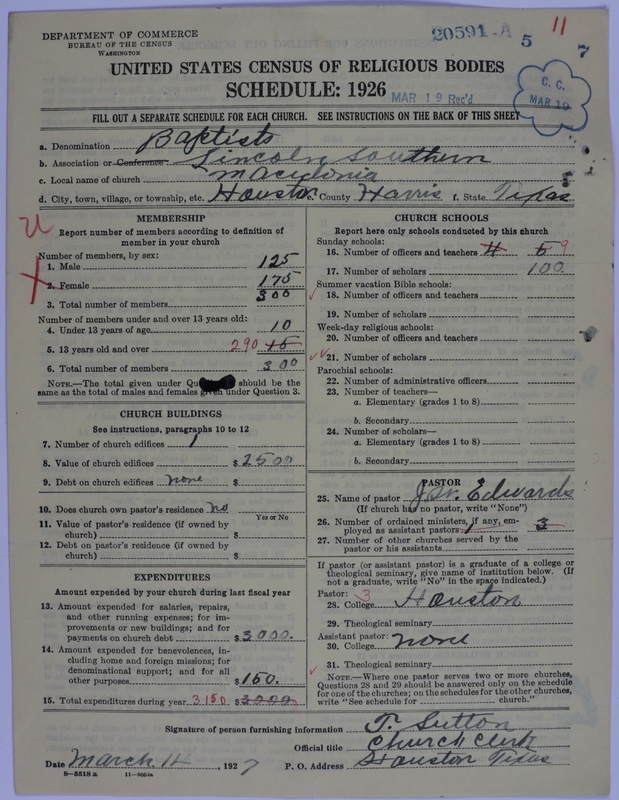 DEPARTMENT OF COMMERCE
BUREAU OF THE CENSUS
WASHINGTON
20591-A 5
11
7
UNITED STATES CENSUS OF RELIGIOUS BODIES
SCHEDULE: 1926
MAR 19 Rec'd
C. C.
MAR 19
FILL OUT A SEPARATE SCHEDULE FOR EACH CHURCH. SEE INSTRUCTIONS ON THE BACK OF THIS SHEET
a. Denomination Baptists
b. Association or Conference Lincoln Southern
c. Local name of church Macidonia
d. City, town, village, or township, etc. Houston e. County Harris f. State Texas
MEMBERSHIP
Report number of members according to definition of
member in your church
Number of members, by sex:
1. Male 125
2. Female 175
3. Total number of members 300
Number of members under and over 13 years old:
4. Under 13 years of age 10
5. 13 years old and over 290 15
6. Total number of members 300
NOTE.—The total given under Qu should be the
same as the total of males and females given under Question 3.
CHURCH BUILDINGS
See instructions, paragraphs 10 to 12
7. Number of church edifices 1
8. Value of church edifices $2500
9. Debt on church edifices none $
10. Does church own pastor's residence no
Yes or No
11. Value of pastor's residence (if owned by
church) $
12. Debt on pastor's residence (if owned by
church) $
EXPENDITURES
Amount expended by your church during last fiscal year
13. Amount expended for salaries, repairs,
and other running expenses; for im-
provements or new buildings; and for
payments on church debt $3000.
14. Amount expended for benevolences, in-
cluding home and foreign missions; for
denominational support; and for all
other purposes $150.
15. Total expenditures during year 3150 $3000
CHURCH SCHOOLS
Report here only schools conducted by this church
Sunday schools:
16. Number of officers and teachers 4 5 9
17. Number of scholars 100
Summer vacation Bible schools:
18. Number of officers and teachers
19. Number of scholars
Week-day religious schools:
20. Number of officers and teachers
21. Number of scholars
Parochial schools:
22. Number of administrative officers
23. Number of teachers—
a. Elementary (grades 1 to 8)
b. Secondary
24. Number of scholars—
a. Elementary (grades 1 to 8)
b. Secondary
PASTOR
25. Name of pastor J. W. Edwards
(If church has no pastor, write "None")
26. Number of ordained ministers, if any, em-
ployed as assistant pastors 3
27. Number of other churches served by the
pastor or his assistants
If pastor (or assistant pastor) is a graduate of a college or
theological seminary, give name of institution below. (If
not a graduate, write "No" in the space indicated.)
Pastor: 3
28. College Houston
29. Theological seminary
Assistant pastor:
30. College none
31. Theological seminary
NOTE.—Where one pastor serves two or more churches,
Questions 28 and 29 should be answered only on the schedule
for one of the churches; on the schedules for the other churches,
write "See schedule for church."
Signature of person furnishing information T. Sutton
Official title Church Clerk
Date March 14, 1927 P. O. Address Houston Texas
8-5518 a 11-9054a